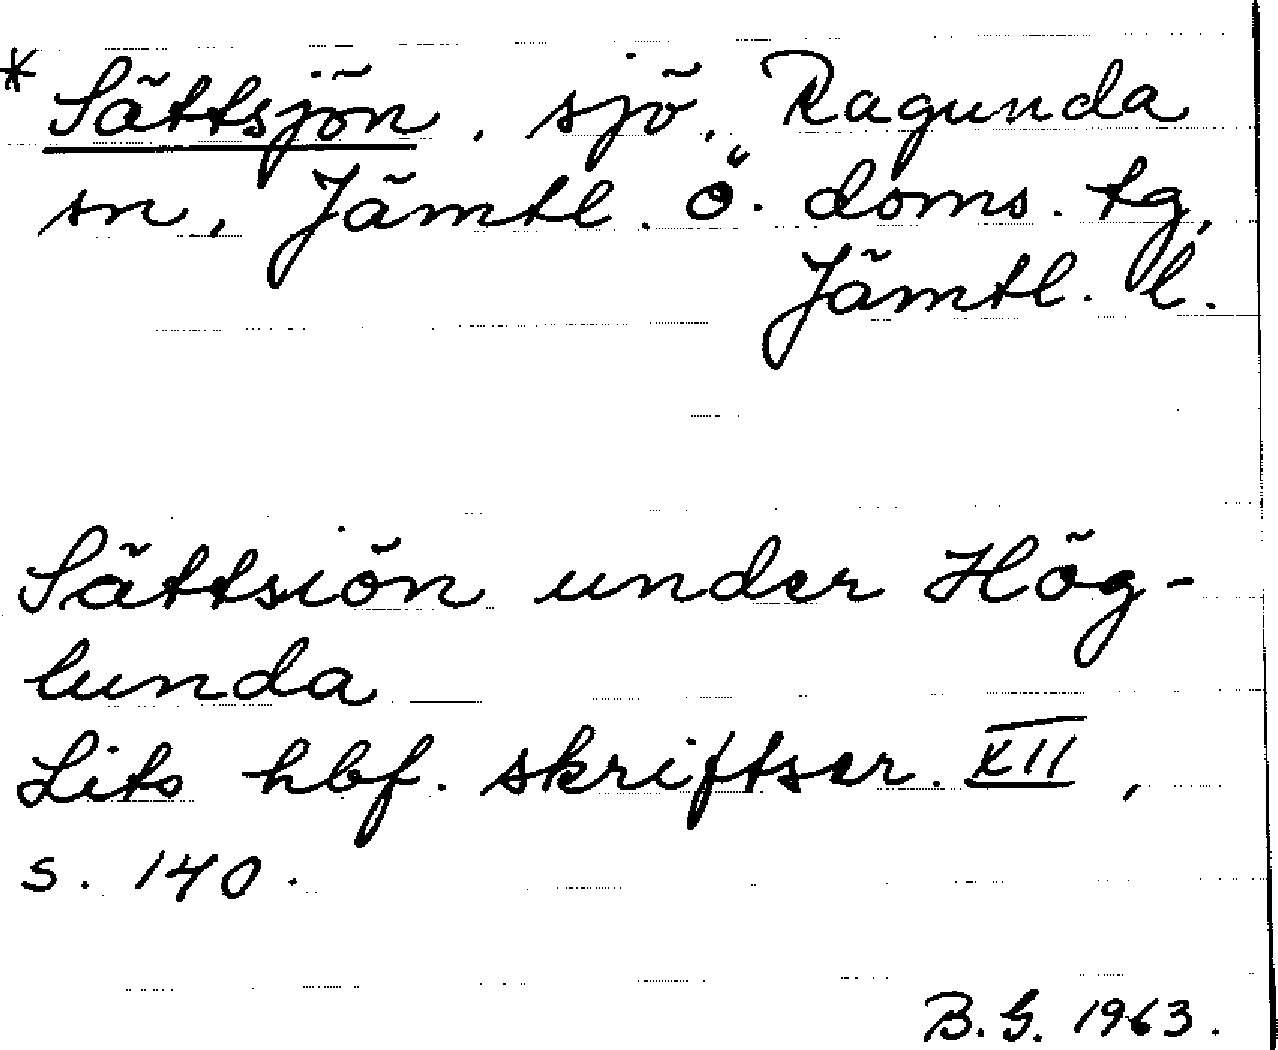 * Sättsjön, sjö, Ragunda
sn, Jämtl. Ö. doms. tg,
Jämtl. l.
Sättsiön under Hög-
lunda
Lits hbf. skriftser. XII,
s. 140.
B.G. 1963.